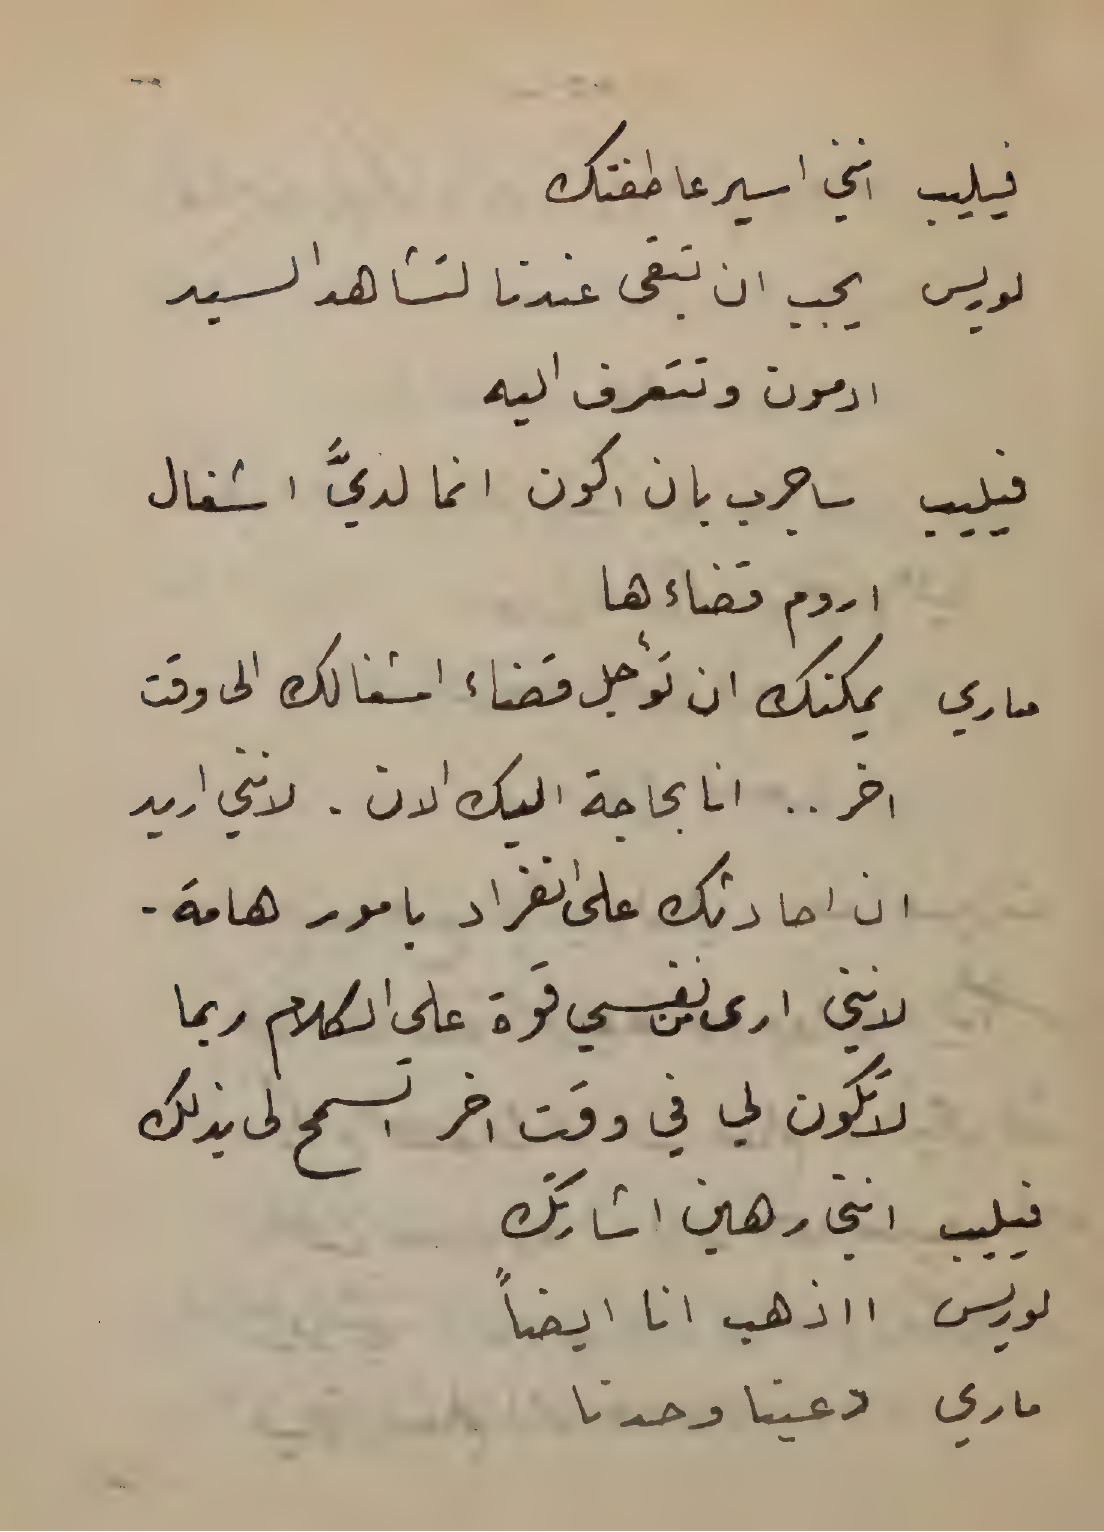 فيليب انني اسير عاطفتك
لوريس يجب ان تبقى عندنا لتشاهد السيد
ادمون وتتعرف اليه
فيليب ساجرب بان اكون انما لديَّ اشغال
اروم قضاءها
ماري يمكنك ان تؤجل قضاء اشغالك الى وقت
اخر .. انا بحاجة اليك الان . لانني اريد
ان احادثك على انفراد بامور هامة -
لانني ارى من نفسي قوة على الكلام ربما
لا تكون لي في وقت اخر اتسمح لى بذلك
فيليب انني رهين اشارتك
لوريس ااذهب انا ايضاً
ماري دعينا وحدنا